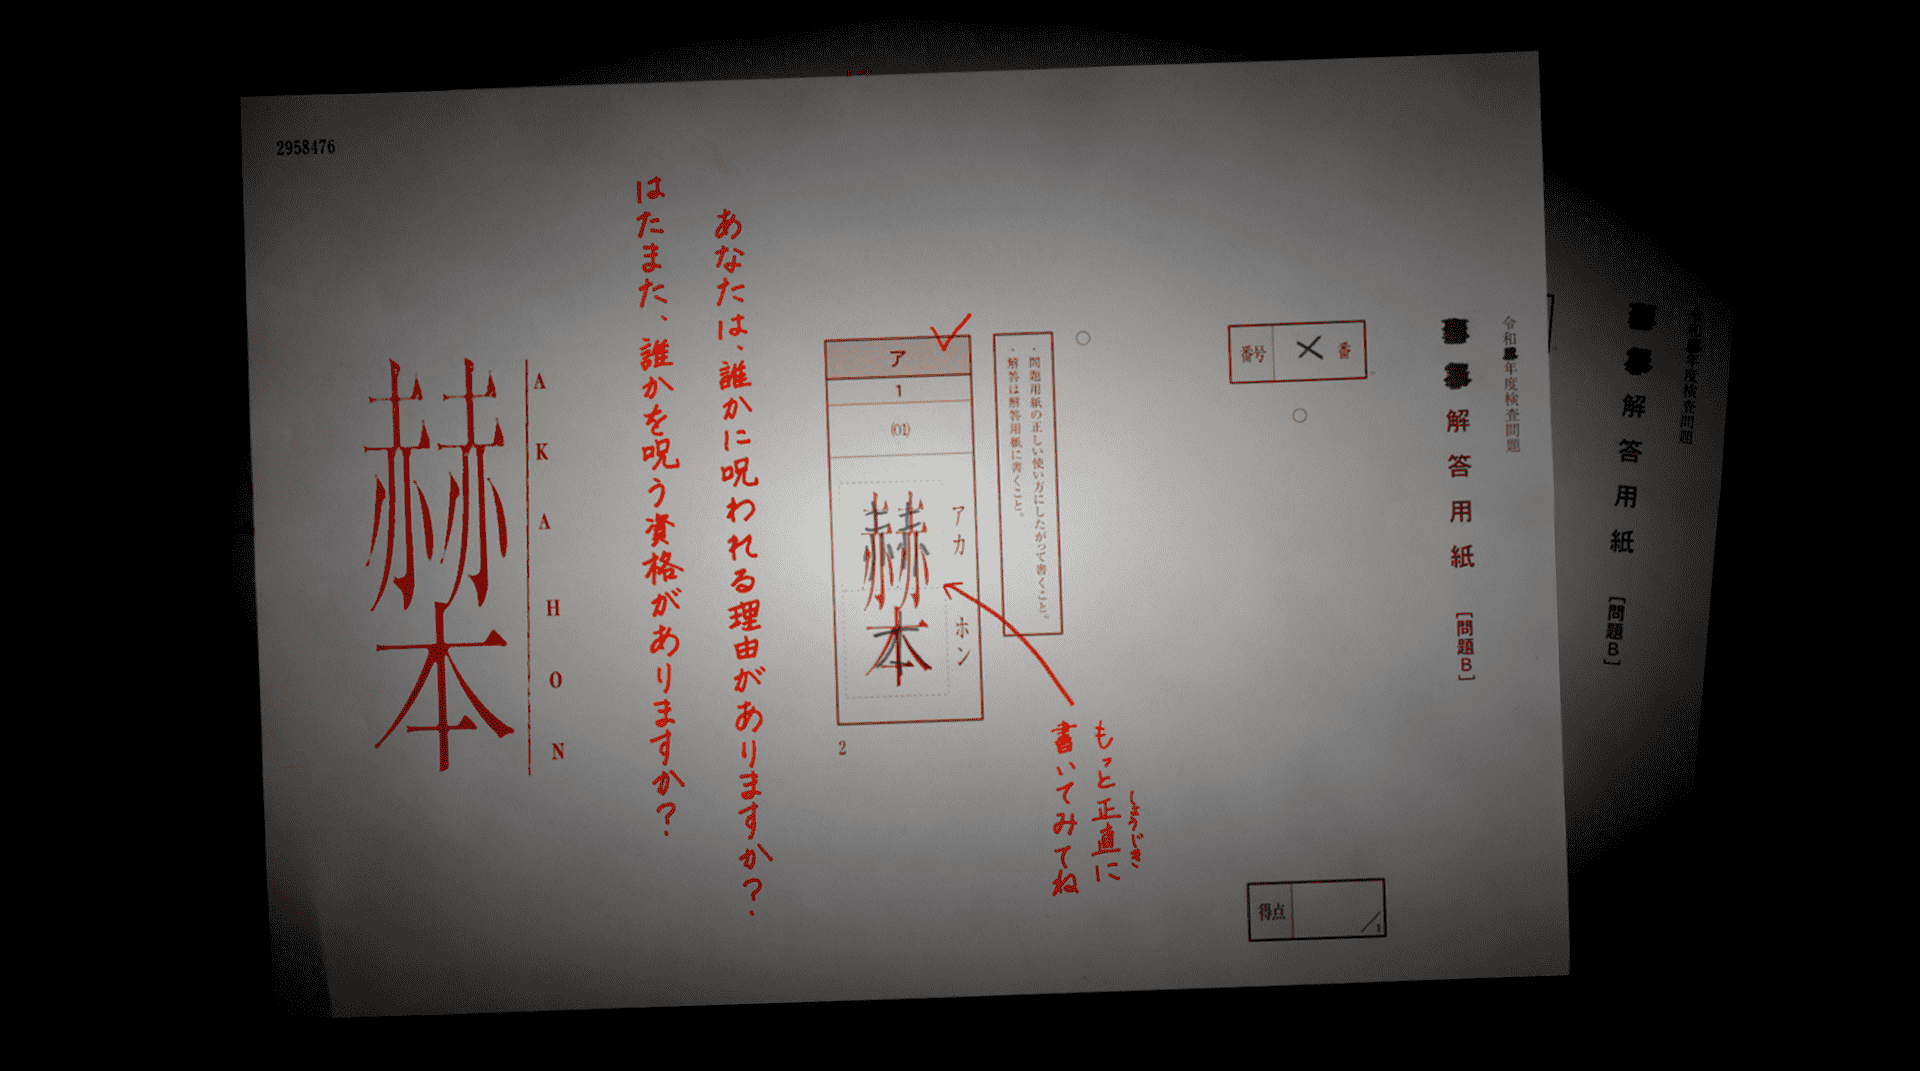 2958476
令和年度検査問題
解答用紙 [問題B]
番号 × 番
得点 /1
・問題用紙の正しい使い方にしたがって書くこと。
・解答は解答用紙に書くこと。
ア
1
(01)
アカ ホン
赫本
2
もっと正直に
しょうじき
書いてみてね
あなたは、誰かに呪われる理由がありますか?
はたまた、誰かを呪う資格がありますか?
AKAHON
赫本
令和年度検査問題
解答用紙 [問題B]